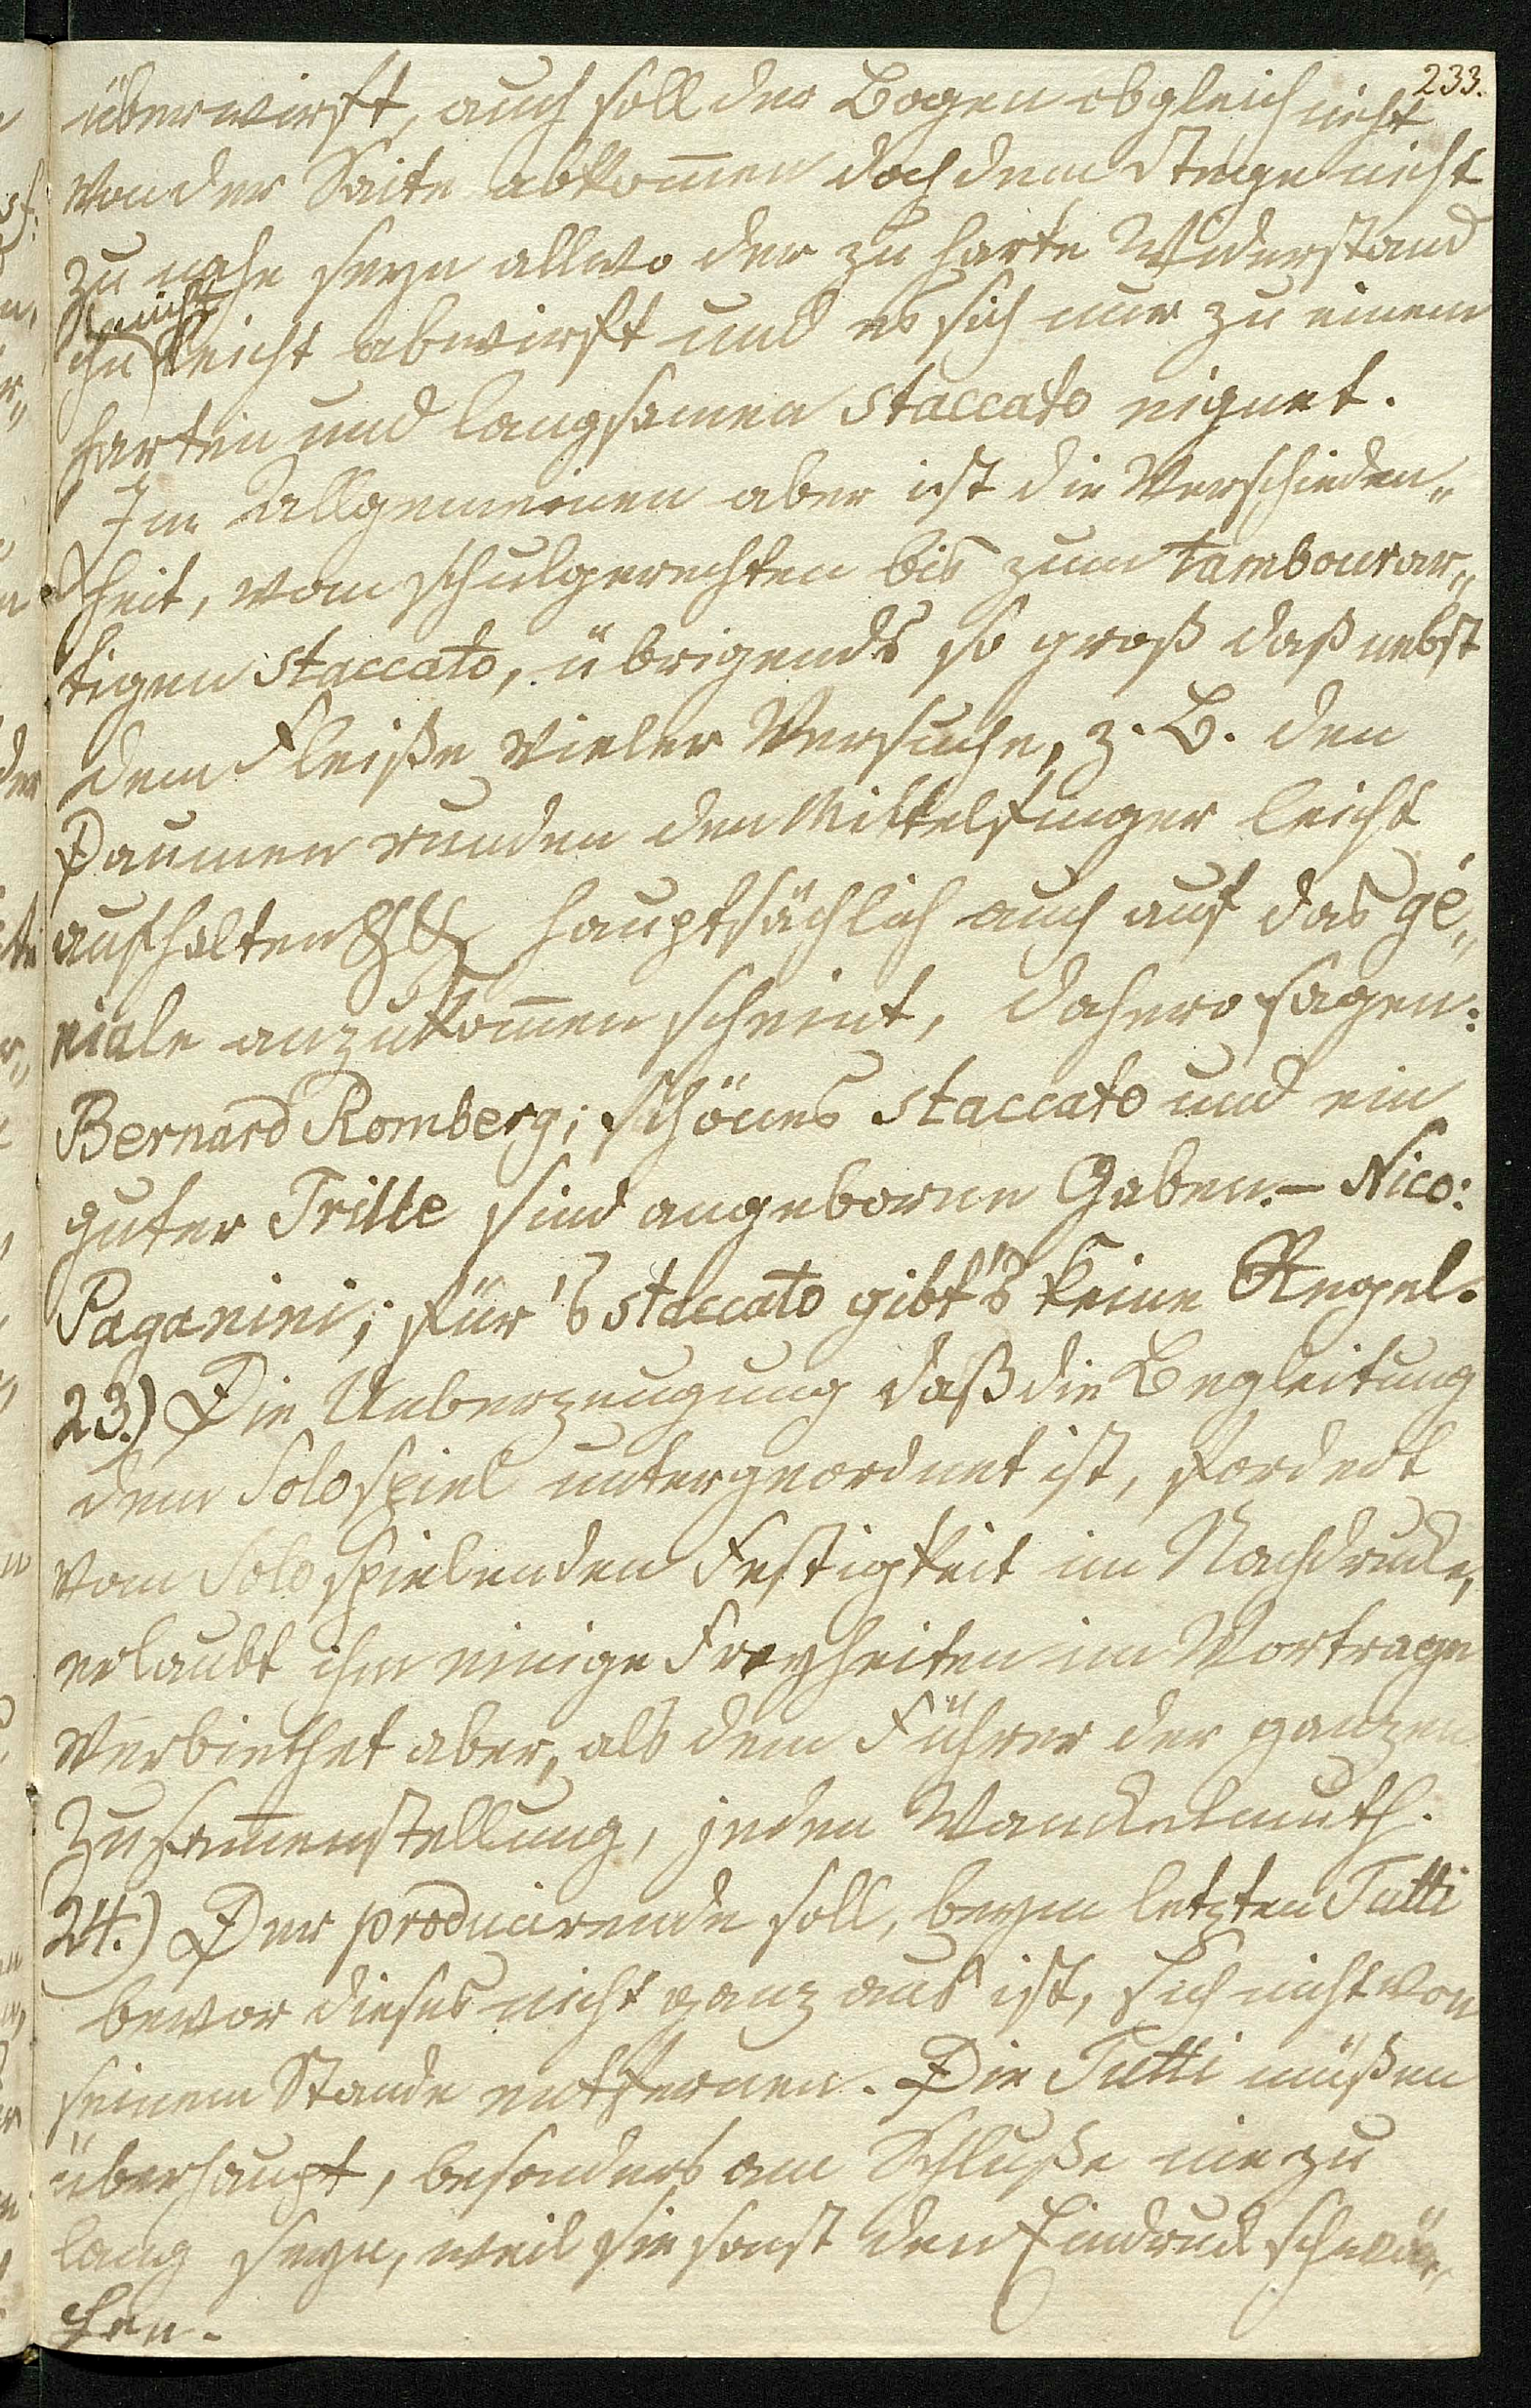 233.
überwirft, auch soll der Bogen obgleich nicht
von der Saite abkom̄en doch dem Stege nicht
zu nahe seyn allwo der zu harte Widerstand
nicht
ihn leicht abwirft und es sich nur zu einem
harten und langsamen staccato eignet.
Im Allgemeinen aber ist die Verschieden„
heit, vom schulgerechten bis zum tambourar„
tigen staccato, übrigends so groß daß nebst
dem Fleiße vieler Versuche, z. B. den
Daumen runden den Mittelfinger leicht
aufhalten &&, hauptsächlich auch auf das gé„
niale anzukom̄en scheint, dahero sagen:
Bernard Romberg; schönes staccato und ein
guter Trille sind angeborne Gaben. – Nico:
Paganini; für's staccato gibt's keine Regel.
23.) Die Ueberzeugung daß die Begleitung
dem Solospiel untergeordnet ist, fordert
vom Solo spielenden Festigkeit im Nachdrucke,
erlaubt ihm einige Freyheiten im Vortrage
verbiethet aber, als dem Führer der ganzen
Zusam̄enstellung, jeden Wankelmuth.
24.) Der producirende soll, beym letzten Tutti
bevor dieses nicht ganz aus ist, sich nicht von
seinem Stande entfernen. Die Tutti müßen
überhaupt, besonders am Schluße nie zu
lang seyn, weil sie sonst den Eindruck schwä„
chen.